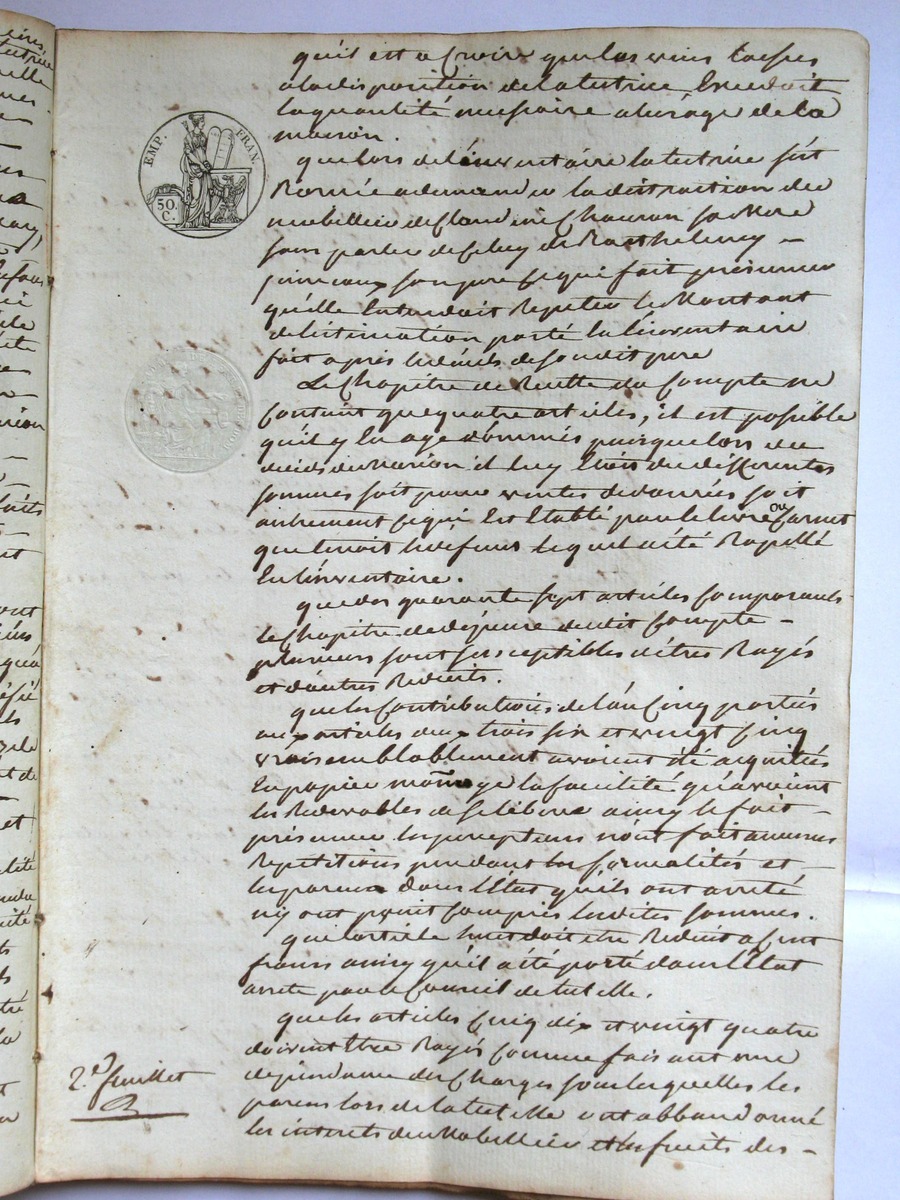 qu'il est a Croire que les vins laissés
a la disposition de la tutrice Excedoit
la quantité nécessaire a lusage de la
maison.
EMP. FRAN.
50.
C.
que lors de l'inventaire la tutrice fit
a demandé la distraction du
mobilier de Claudine Chauron sa Mere
sans parler de celuy de Barthelemy –
son pere ce qui fait présumer
qu'elle Entendoit Repeter le Montant
de l'estimation porté En l'inventaire
fait après le décès de son dit pere
Le Chapitre de Recette du Compte ne
Contient que quatre articles, il est possible
qu'il y En aye d'ommis puisque lors du
décès du marion il luy Etoit du differentes
sommes soit pour ventes de denrées soit
autrement ce qui Est Etabli par le livre ou Carnet
que tenoit le defunt lequel a été Rapellé
En l'inventaire.
que des quarante sept articles Composants
le Chapitre de depense dudit Compte –
plusieurs sont susceptibles d'êtres Rayés
et d'autres Reduits.
que les Contributions de l'an Cinq portées
aux articles deux trois six et vingt Cinq
vraisemblablement avoient été acquitées
En papier monnoye la facilité qu'avoient
les Redevables de se libérer ainsy le fait
présumer les percepteurs n'ont fait aucunes
Repetitions pendant les formalités et
les parens dans l'Etat qu'ils ont arrété
n'y ont point Compris lesdites sommes.
que l'article huit doit etre Reduit a Cent
francs ainsy qu'il a été porté dans l'Etat
arreté par le Conseil de tutelle.
que les articles Cinq dix et vingt quatre
doivent Etre Rayés Comme faisant une
dépendance des Charges sous lesquelles les
parens lors de la tutelle ont abbandonné
les interets du Mobillier et les fruits des –
2.e feuillet